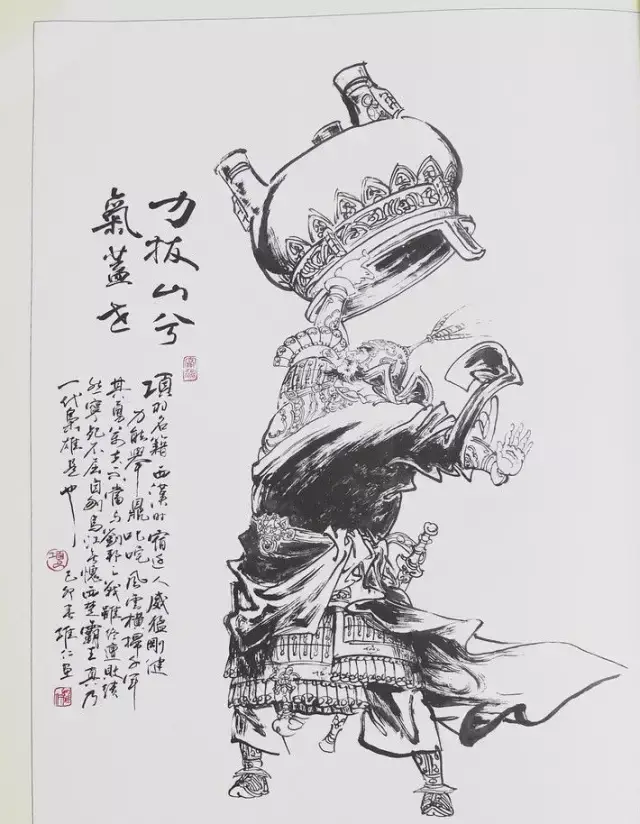 力拔山兮
氣蓋世
項羽名籍西漢时宿迁人威猛剛健
力能舉鼎叱咤風雲橫掃千軍
其勇萬夫不當与劉邦之戰雖终連敗績
然寧死不屈自刎烏江無愧西楚霸王真乃
一代梟雄是也
己卯春雄仁